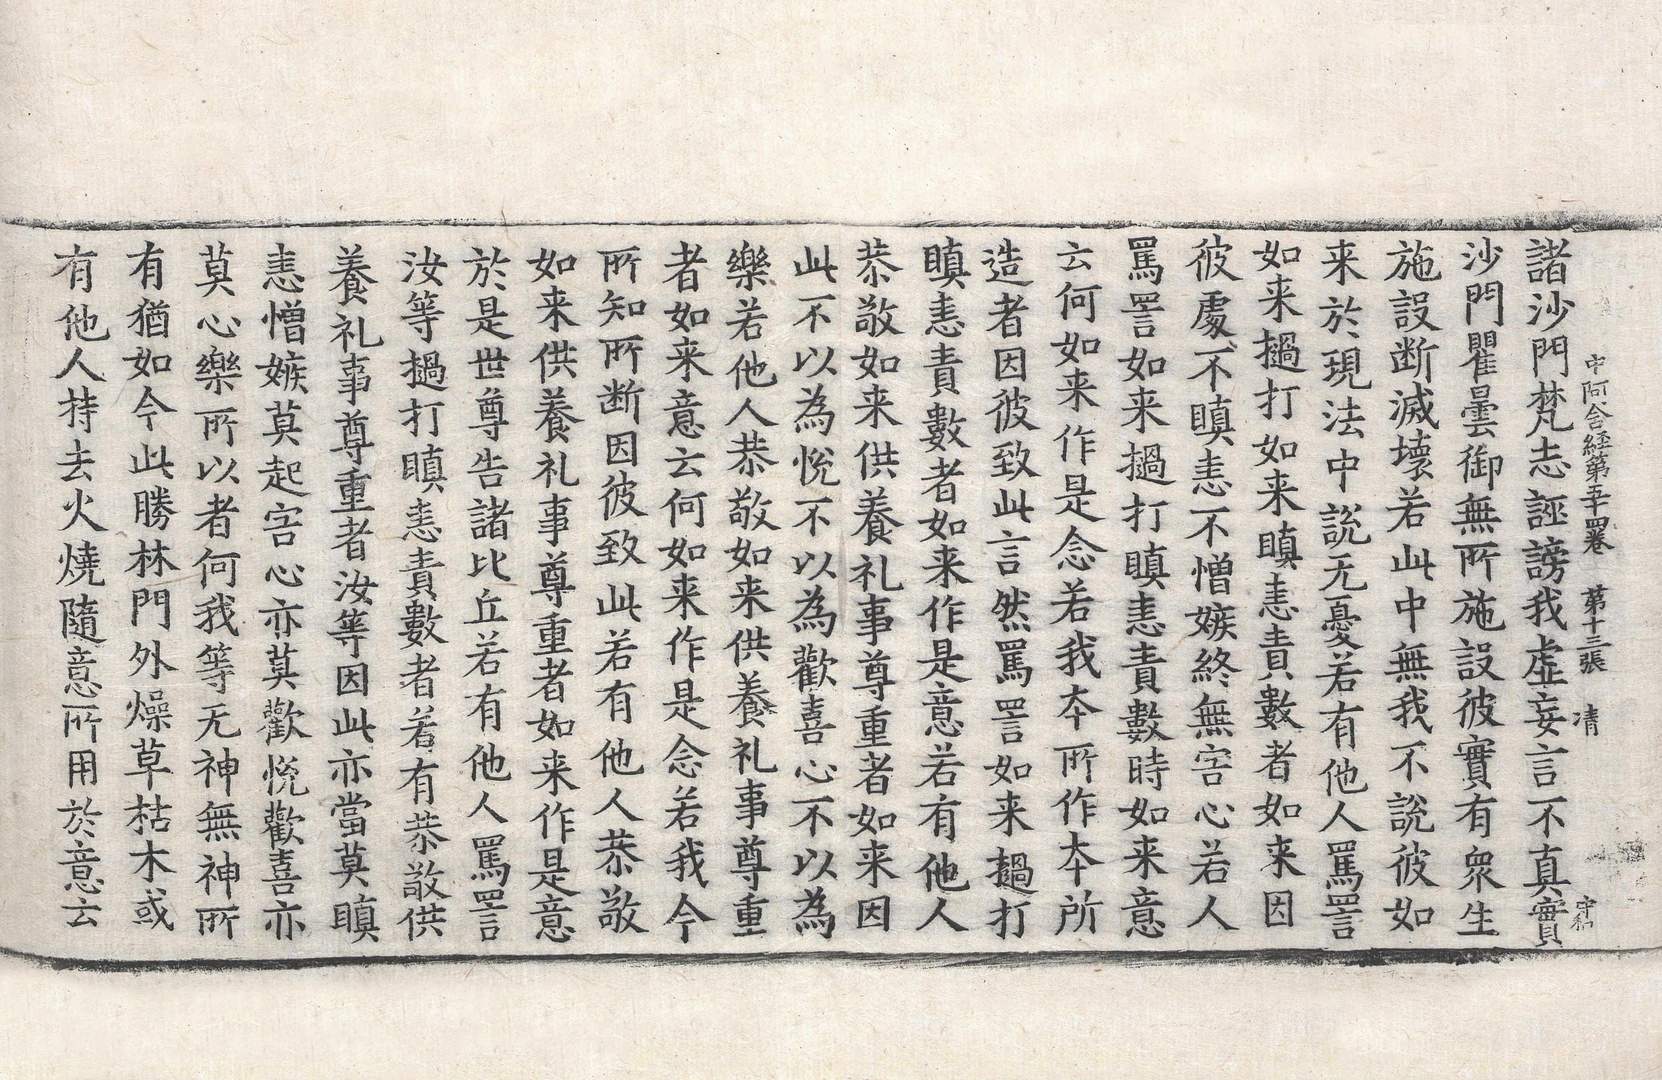 中阿含經第五十四卷 第十三張 清
諸沙門梵志誣謗我虛妄言不真實
沙門瞿曇御無所施設彼實有衆生
施設断滅壞若此中無我不說彼如
来於現法中說无憂若有他人罵詈
如来撾打如来瞋恚責數者如来因
彼處不瞋恚不憎嫉終無害心若人
罵詈如来撾打瞋恚責數時如来意
云何如来作是念若我夲所作夲所
造者因彼致此言然罵詈如来撾打
瞋恚責數者如来作是意若有他人
恭敬如来供養礼事尊重者如来因
此不以為悅不以為歡喜心不以為
樂若他人恭敬如来供養礼事尊重
者如来意云何如来作是念若我今
所知所断因彼致此若有他人恭敬
如来供養礼事尊重者如来作是意
於是世尊告諸比丘若有他人罵詈
汝等撾打瞋恚責數者若有恭敬供
養礼事尊重者汝等因此亦當莫瞋
恚憎嫉莫起害心亦莫歡悅歡喜亦
莫心樂所以者何我等无神無神所
有猶如今此勝林門外燥草枯木或
有他人持去火燒隨意所用於意云